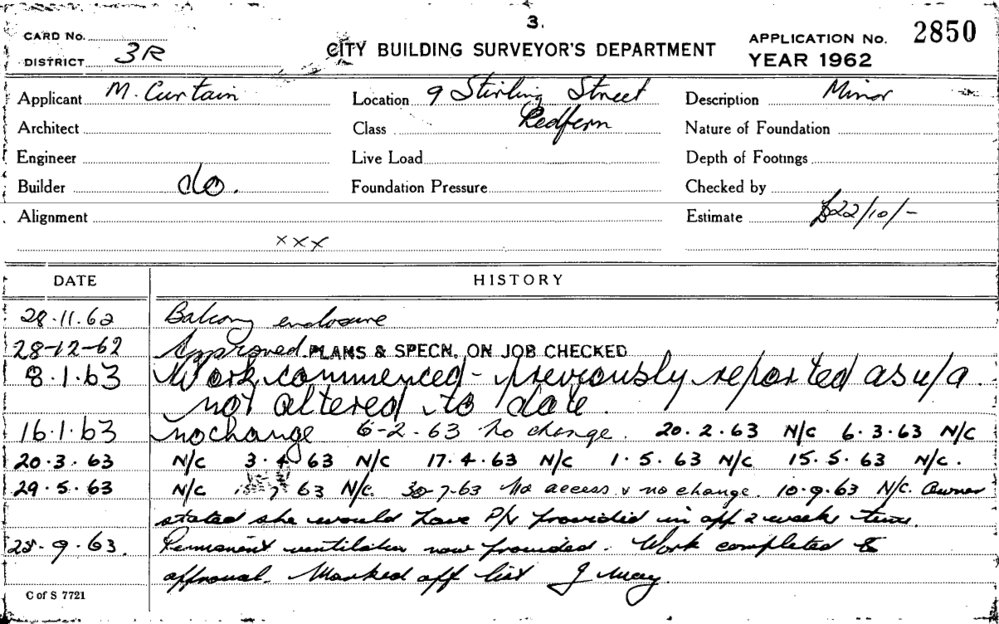 3.
CARD No.
CITY BUILDING SURVEYOR'S DEPARTMENT
APPLICATION No. 2850
DISTRICT 3R
YEAR 1962
Applicant M. Curtain
Location 9 Stirling Street
Description Minor
Architect
Class Redfern
Nature of Foundation
Engineer
Live Load
Depth of Footings
Builder do.
Foundation Pressure
Checked by
Alignment
Estimate £22/10/-
xxx
DATE HISTORY
28.11.62 Balcony enclosure
28-12-62 Approved. PLANS & SPECN. ON JOB CHECKED
8.1.63 Work commenced - previously reported as u/a
not altered to date.
16.1.63 no change 6-2-63 No change. 20.2.63 N/C 6.3.63 N/C
20.3.63 N/C 3.4.63 N/C 17.4.63 N/C 1.5.63 N/C 15.5.63 N/C.
29.5.63 N/C 7 63 N/C. 30-7-63 No access & no change. 10.9.63 N/C. Owner
stated she would have P/V provided in app 2 weeks time.
25.9.63. Permanent ventilation now provided. Work completed to
approval. Marked off list J
C of S 7721